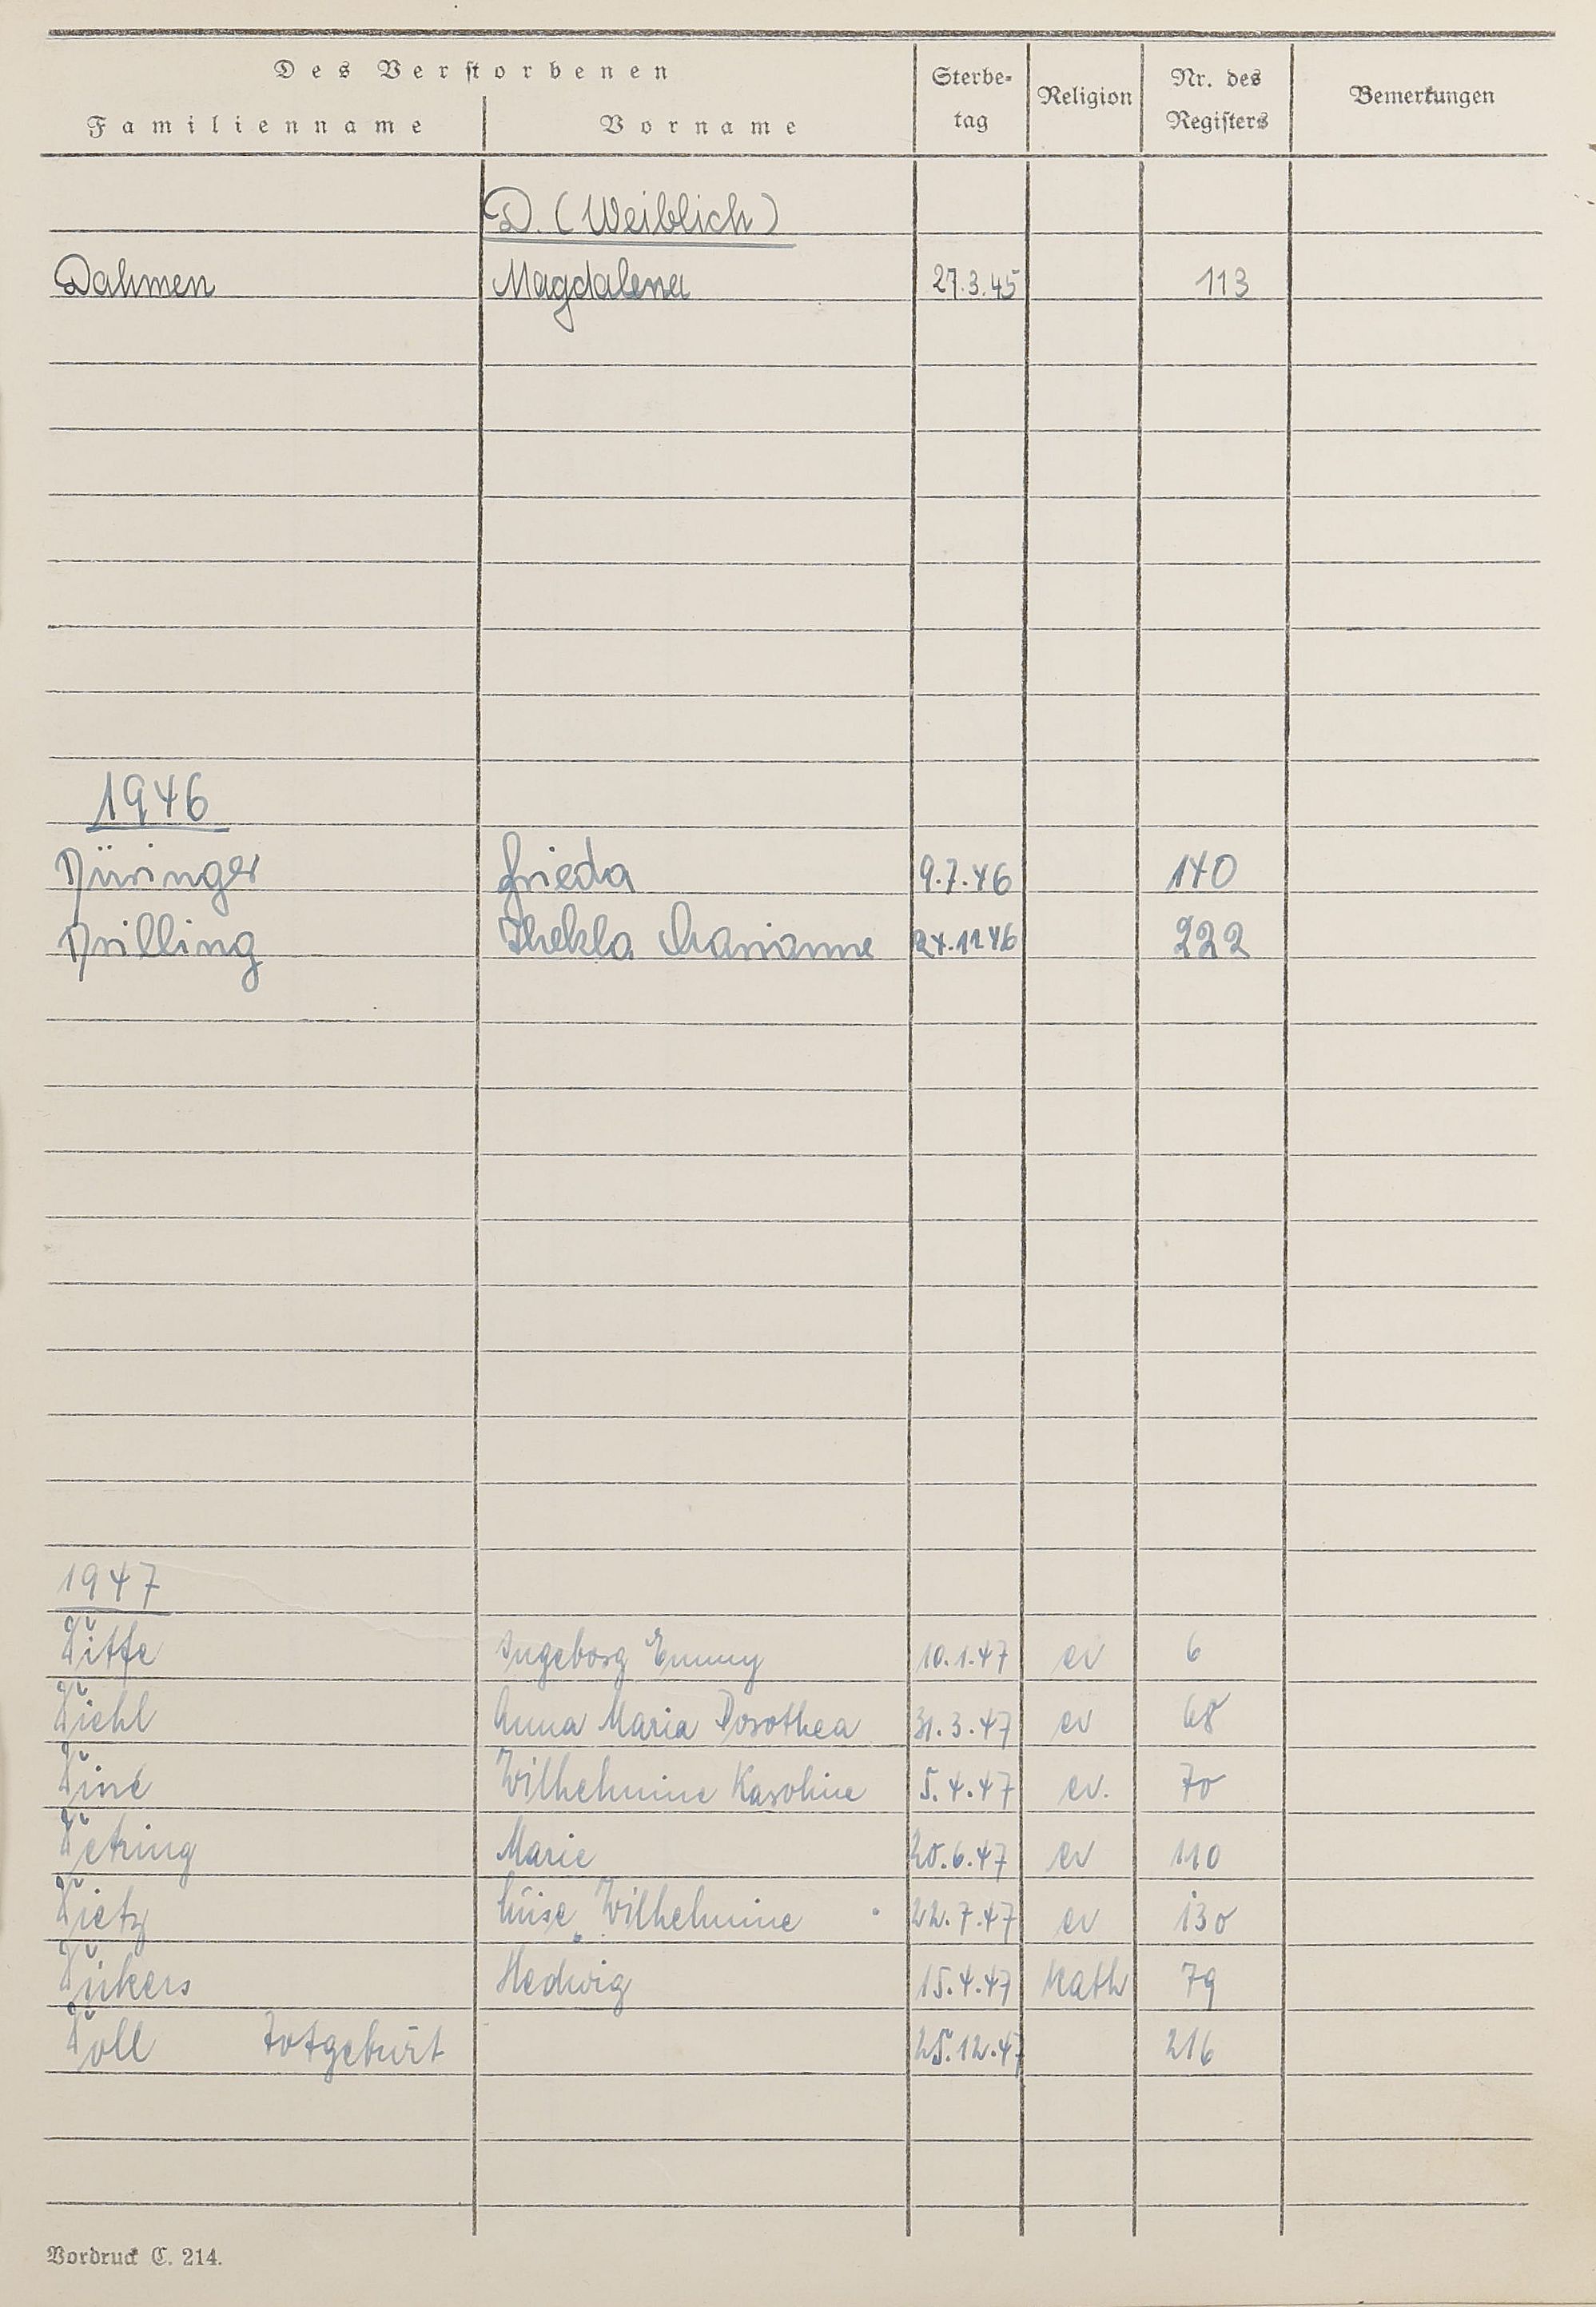 Des Verstorbenen
Familienname Vorname Sterbe-tag Religion Nr. des Registers Bemerkungen
D. (Weiblich)
Dahmen Magdalena 27.3.45 113
1946
Düringer Frieda 9.7.46 140
Drilling Thekla Marianne 24.11.46 222
1947
Ingeborg Emmy 10.1.47 ev 6
Diehl Anna Maria Dorothea 31.3.47 ev 68
Diné Wilhelmine Karoline 5.4.47 ev. 70
Detring Marie 20.6.47 ev 110
Dietz Luise Wilhelmine 22.7.47 ev 130
Dükers Hedwig 15.4.47 Kath 79
Doll Totgeburt 25.12.47 216
Vordruck C. 214.